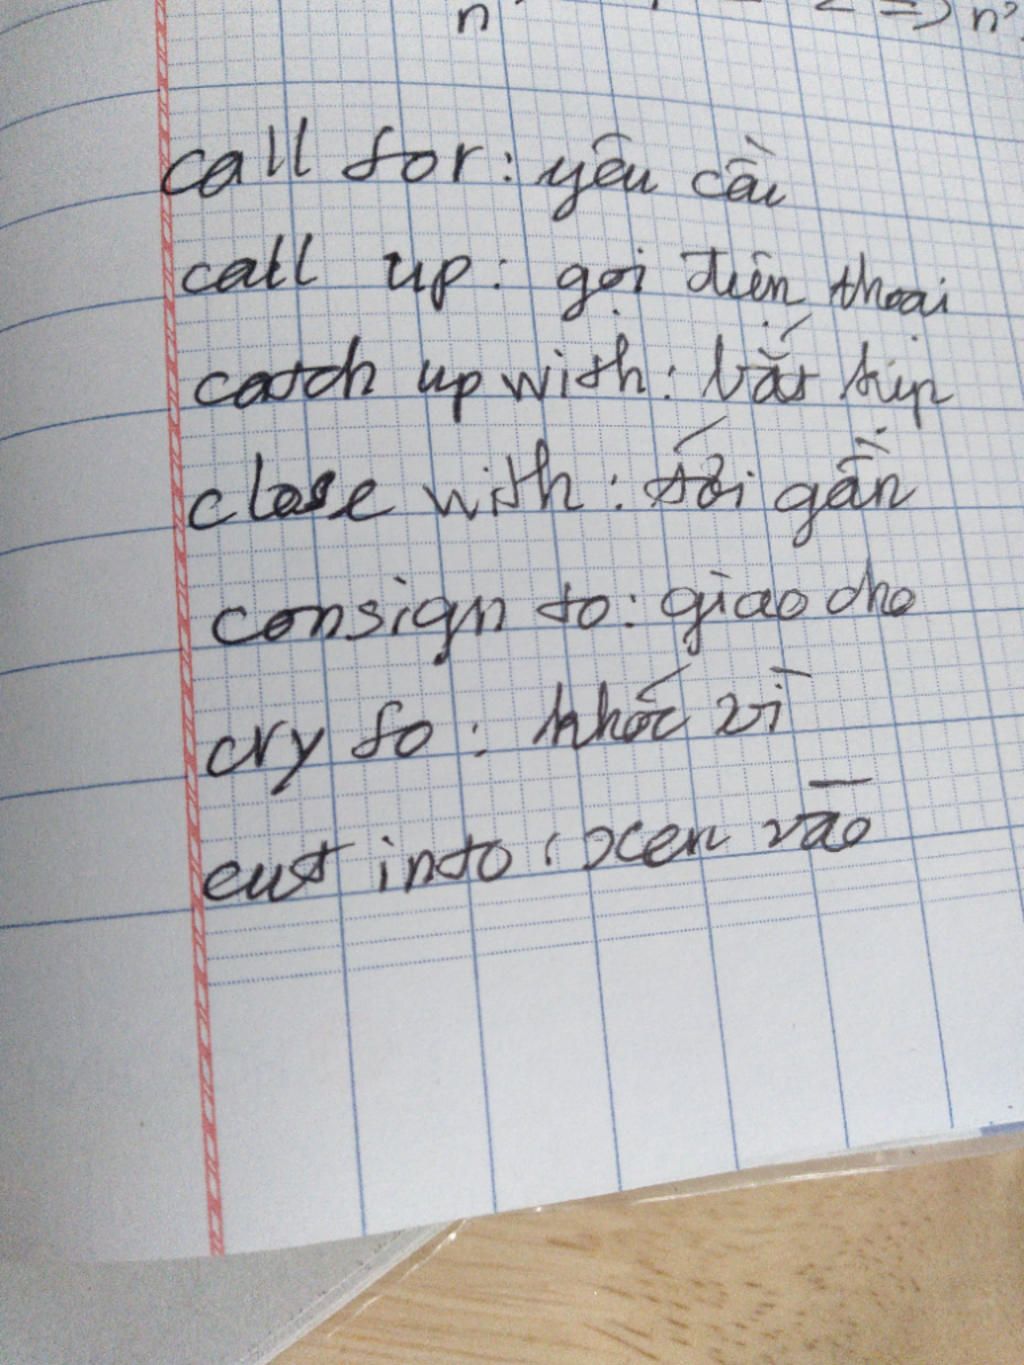 call for: yêu cầu
call up: gọi điện thoại
catch up with: bắt kịp
close with: tới gần
consign to: giao cho
cry fo: khóc vì
cut into: xen vào